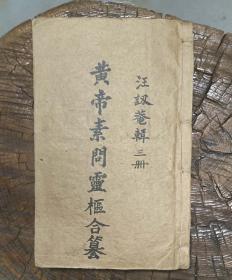 汪訒菴輯三册
黄帝素問靈樞合纂